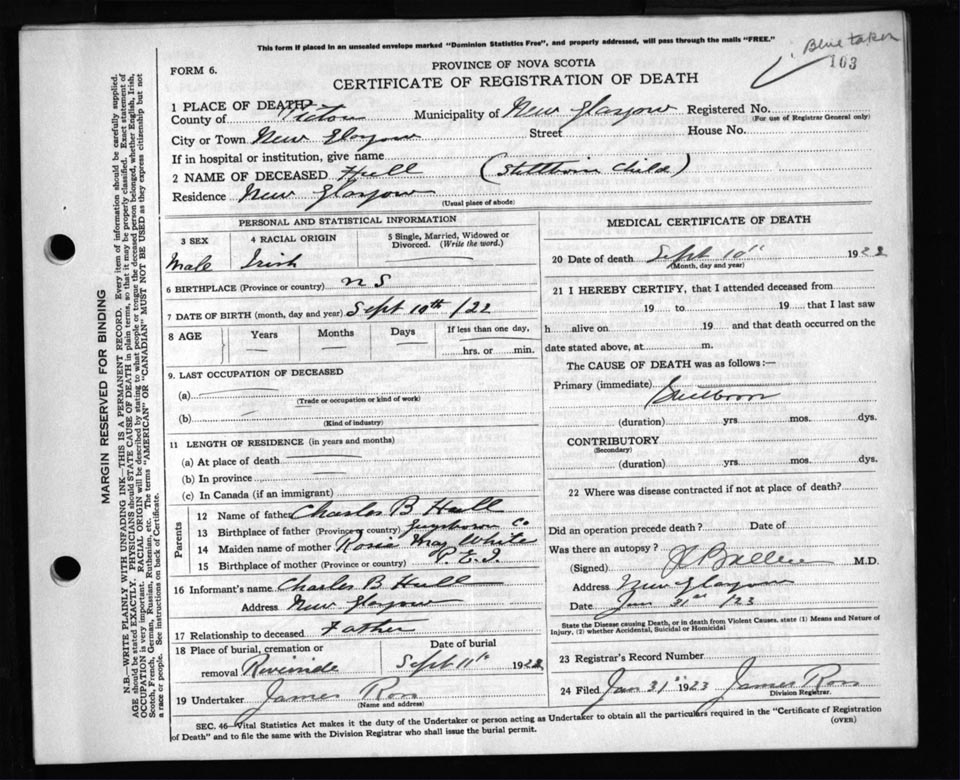 This form if placed in an unsealed envelope marked "Dominion Statistics Free", and properly addressed, will pass through the mails "FREE."
Blue taken
103
FORM 6.
PROVINCE OF NOVA SCOTIA
CERTIFICATE OF REGISTRATION OF DEATH
1 PLACE OF DEATH
County of Pictou Municipality of New Glasgow Registered No.
(For use of Registrar General only)
City or Town New Glasgow Street House No.
If in hospital or institution, give name
2 NAME OF DECEASED Hull (Stillborn Child)
Residence New Glasgow
(Usual place of abode)
PERSONAL AND STATISTICAL INFORMATION
3 SEX 4 RACIAL ORIGIN 5 Single, Married, Widowed or Divorced. (Write the word.)
Male Irish
6 BIRTHPLACE (Province or country) N S
7 DATE OF BIRTH (month, day and year) Sept 10th /22
8 AGE Years Months Days If less than one day,
hrs. or min.
9. LAST OCCUPATION OF DECEASED
(a)
(Trade or occupation or kind of work)
(b)
(Kind of industry)
11 LENGTH OF RESIDENCE (in years and months)
(a) At place of death
(b) In province
(c) In Canada (if an immigrant)
Parents
12 Name of father Charles B Hull
13 Birthplace of father (Province or country) Co
14 Maiden name of mother Rosie May White
15 Birthplace of mother (Province or country) P.E.I.
16 Informant's name Charles B Hull
Address New Glasgow
17 Relationship to deceased Father
18 Place of burial, cremation or Date of burial
removal Riverside Sept 11th 1922
19 Undertaker James Ross
(Name and address)
MEDICAL CERTIFICATE OF DEATH
20 Date of death Sept 10th 1922
(Month, day and year)
21 I HEREBY CERTIFY, that I attended deceased from
19 to 19 that I last saw
h alive on 19 and that death occurred on the
date stated above, at m.
The CAUSE OF DEATH was as follows:—
Primary (immediate) Stillborn
(duration) yrs. mos. dys.
CONTRIBUTORY
(Secondary)
(duration) yrs. mos. dys.
22 Where was disease contracted if not at place of death?
Did an operation precede death? Date of
Was there an autopsy?
(Signed) M.D.
Address New Glasgow
Date Jan 31st /23
State the Disease causing Death, or in death from Violent Causes, state (1) Means and Nature of
Injury, (2) whether Accidental, Suicidal or Homicidal
23 Registrar's Record Number
24 Filed Jan 31st 1923 James Ross
Division Registrar.
SEC. 46—Vital Statistics Act makes it the duty of the Undertaker or person acting as Undertaker to obtain all the particulars required in the "Certificate of Registration
of Death" and to file the same with the Division Registrar who shall issue the burial permit.
(OVER)
MARGIN RESERVED FOR BINDING
N.B.—WRITE PLAINLY WITH UNFADING INK—THIS IS A PERMANENT RECORD. Every item of information should be carefully supplied.
AGE should be stated EXACTLY. PHYSICIANS should STATE CAUSE OF DEATH in plain terms, so that it may be properly classified. Exact statement of
OCCUPATION is very important. RACIAL ORIGIN will be described by stating to what people or tongue the deceased person belonged, whether English, Irish,
Scotch, French, German, Russian, Ruthenian, etc. The terms "AMERICAN" or "CANADIAN" MUST NOT BE USED as they express citizenship but not
a race or people. See instructions on back of Certificate.